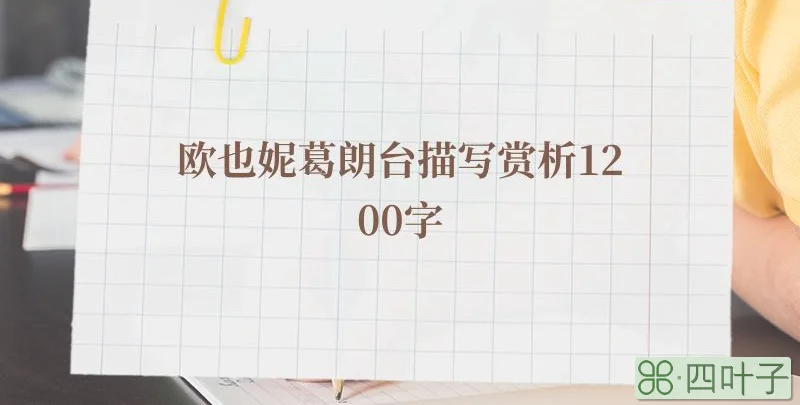 欧也妮葛朗台描写赏析12
00字
四叶子